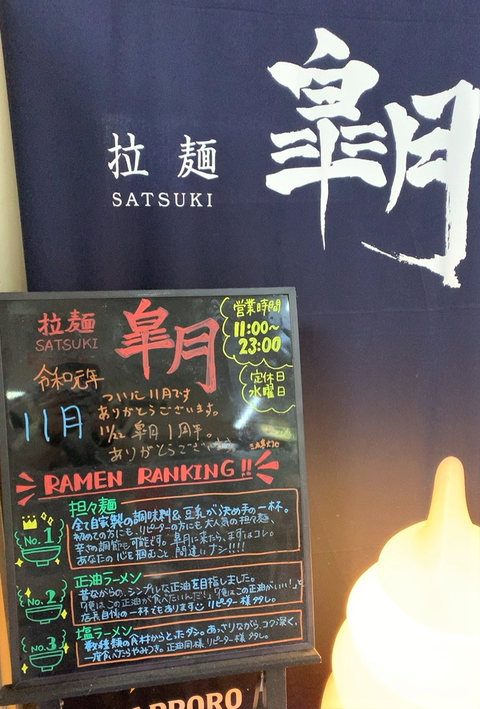 皐月
拉麺
SATSUKI
拉麺
SATSUKI
皐月
営業時間
11:00~
23:00
定休日
水曜日
令和元年
11月
ついに11月です
ありがとうございます。
皐月1周年。
ありがとうございます
RAMEN RANKING!!
No.1
担々麺
全て自家製の調味料&豆乳が決め手の一杯。
初めての方にも、リピーターの方にも大人気の担々麺、
辛さの調節も可能です。皐月に来たら、まずはコレ。
あなたの心を掴むこと間違いナシ!!!!
No.2
正油ラーメン
昔ながらの、シンプルな正油を目指しました。
「俺はこの正油が食べたいんだ!」「俺はこの正油がいい!」と
店長自信の一杯でもあります リピーター様多し。
No.3
塩ラーメン
数種類の食材からとったダシ。あっさりながら、コク深く、
一度食べたらやみつき。正油同様、リピーター様多し。
SAPPORO